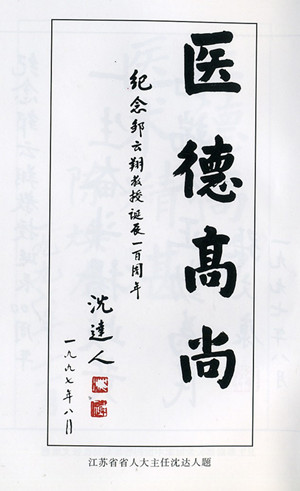 医德高尚
纪念邹云翔教授诞辰一百周年
沈达人
一九九七年八月
江苏省省人大主任沈达人题